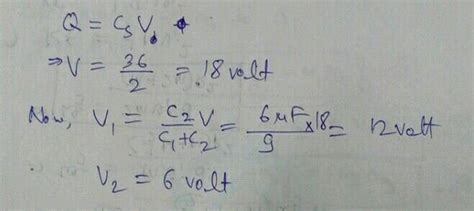 Q = CₛV.
⇒ V = 36/2 = 18 volt
Now, V₁ = C₂V/C₁+C₂ = 6μF×18/9 = 12 volt
V₂ = 6 volt